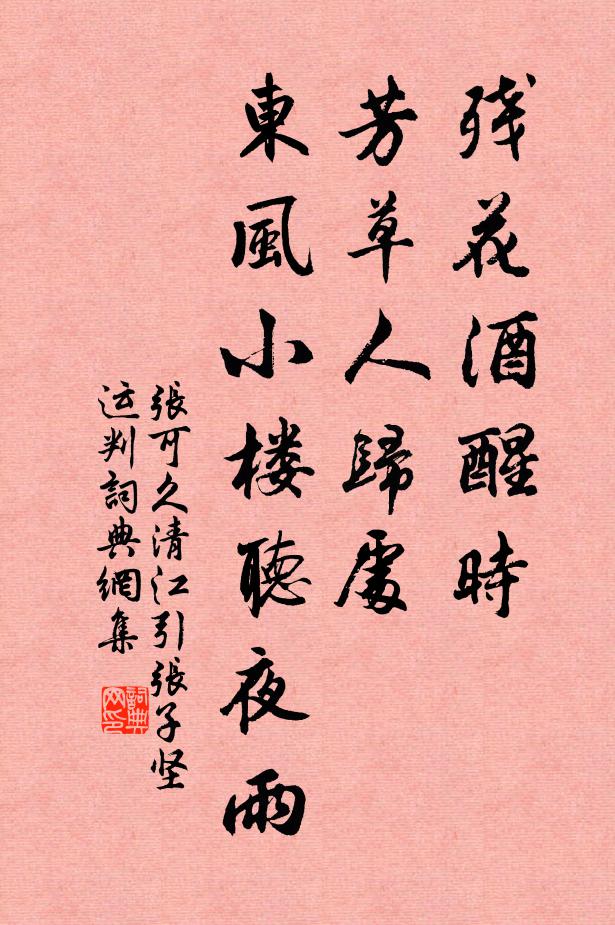 残花酒醒時
芳草人歸處
東風小楼聽夜雨
張可久清江引張子坚
运判詞典網集
詞典
网印